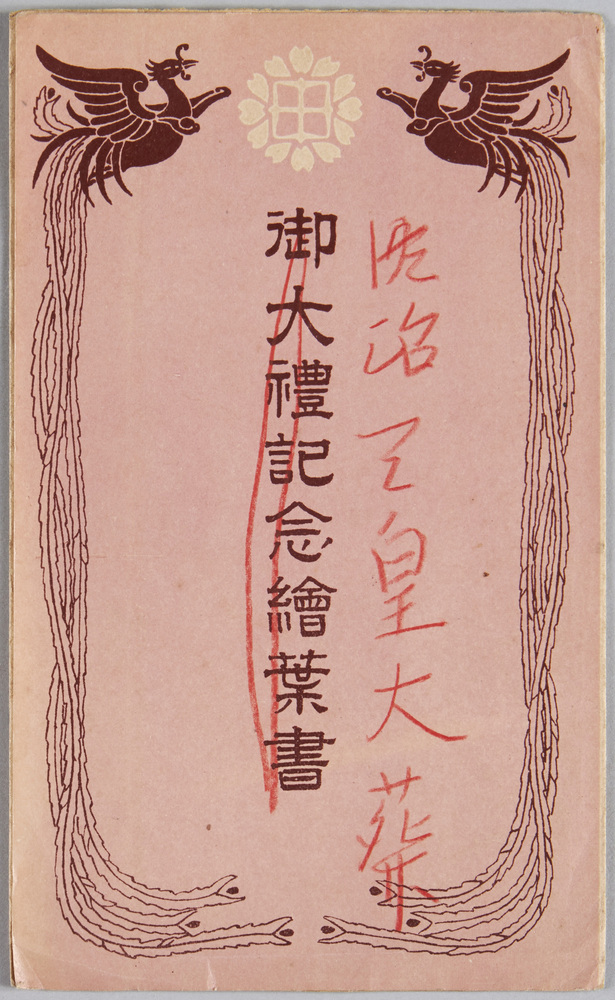 明治天皇大葬
御大禮記念繪葉書